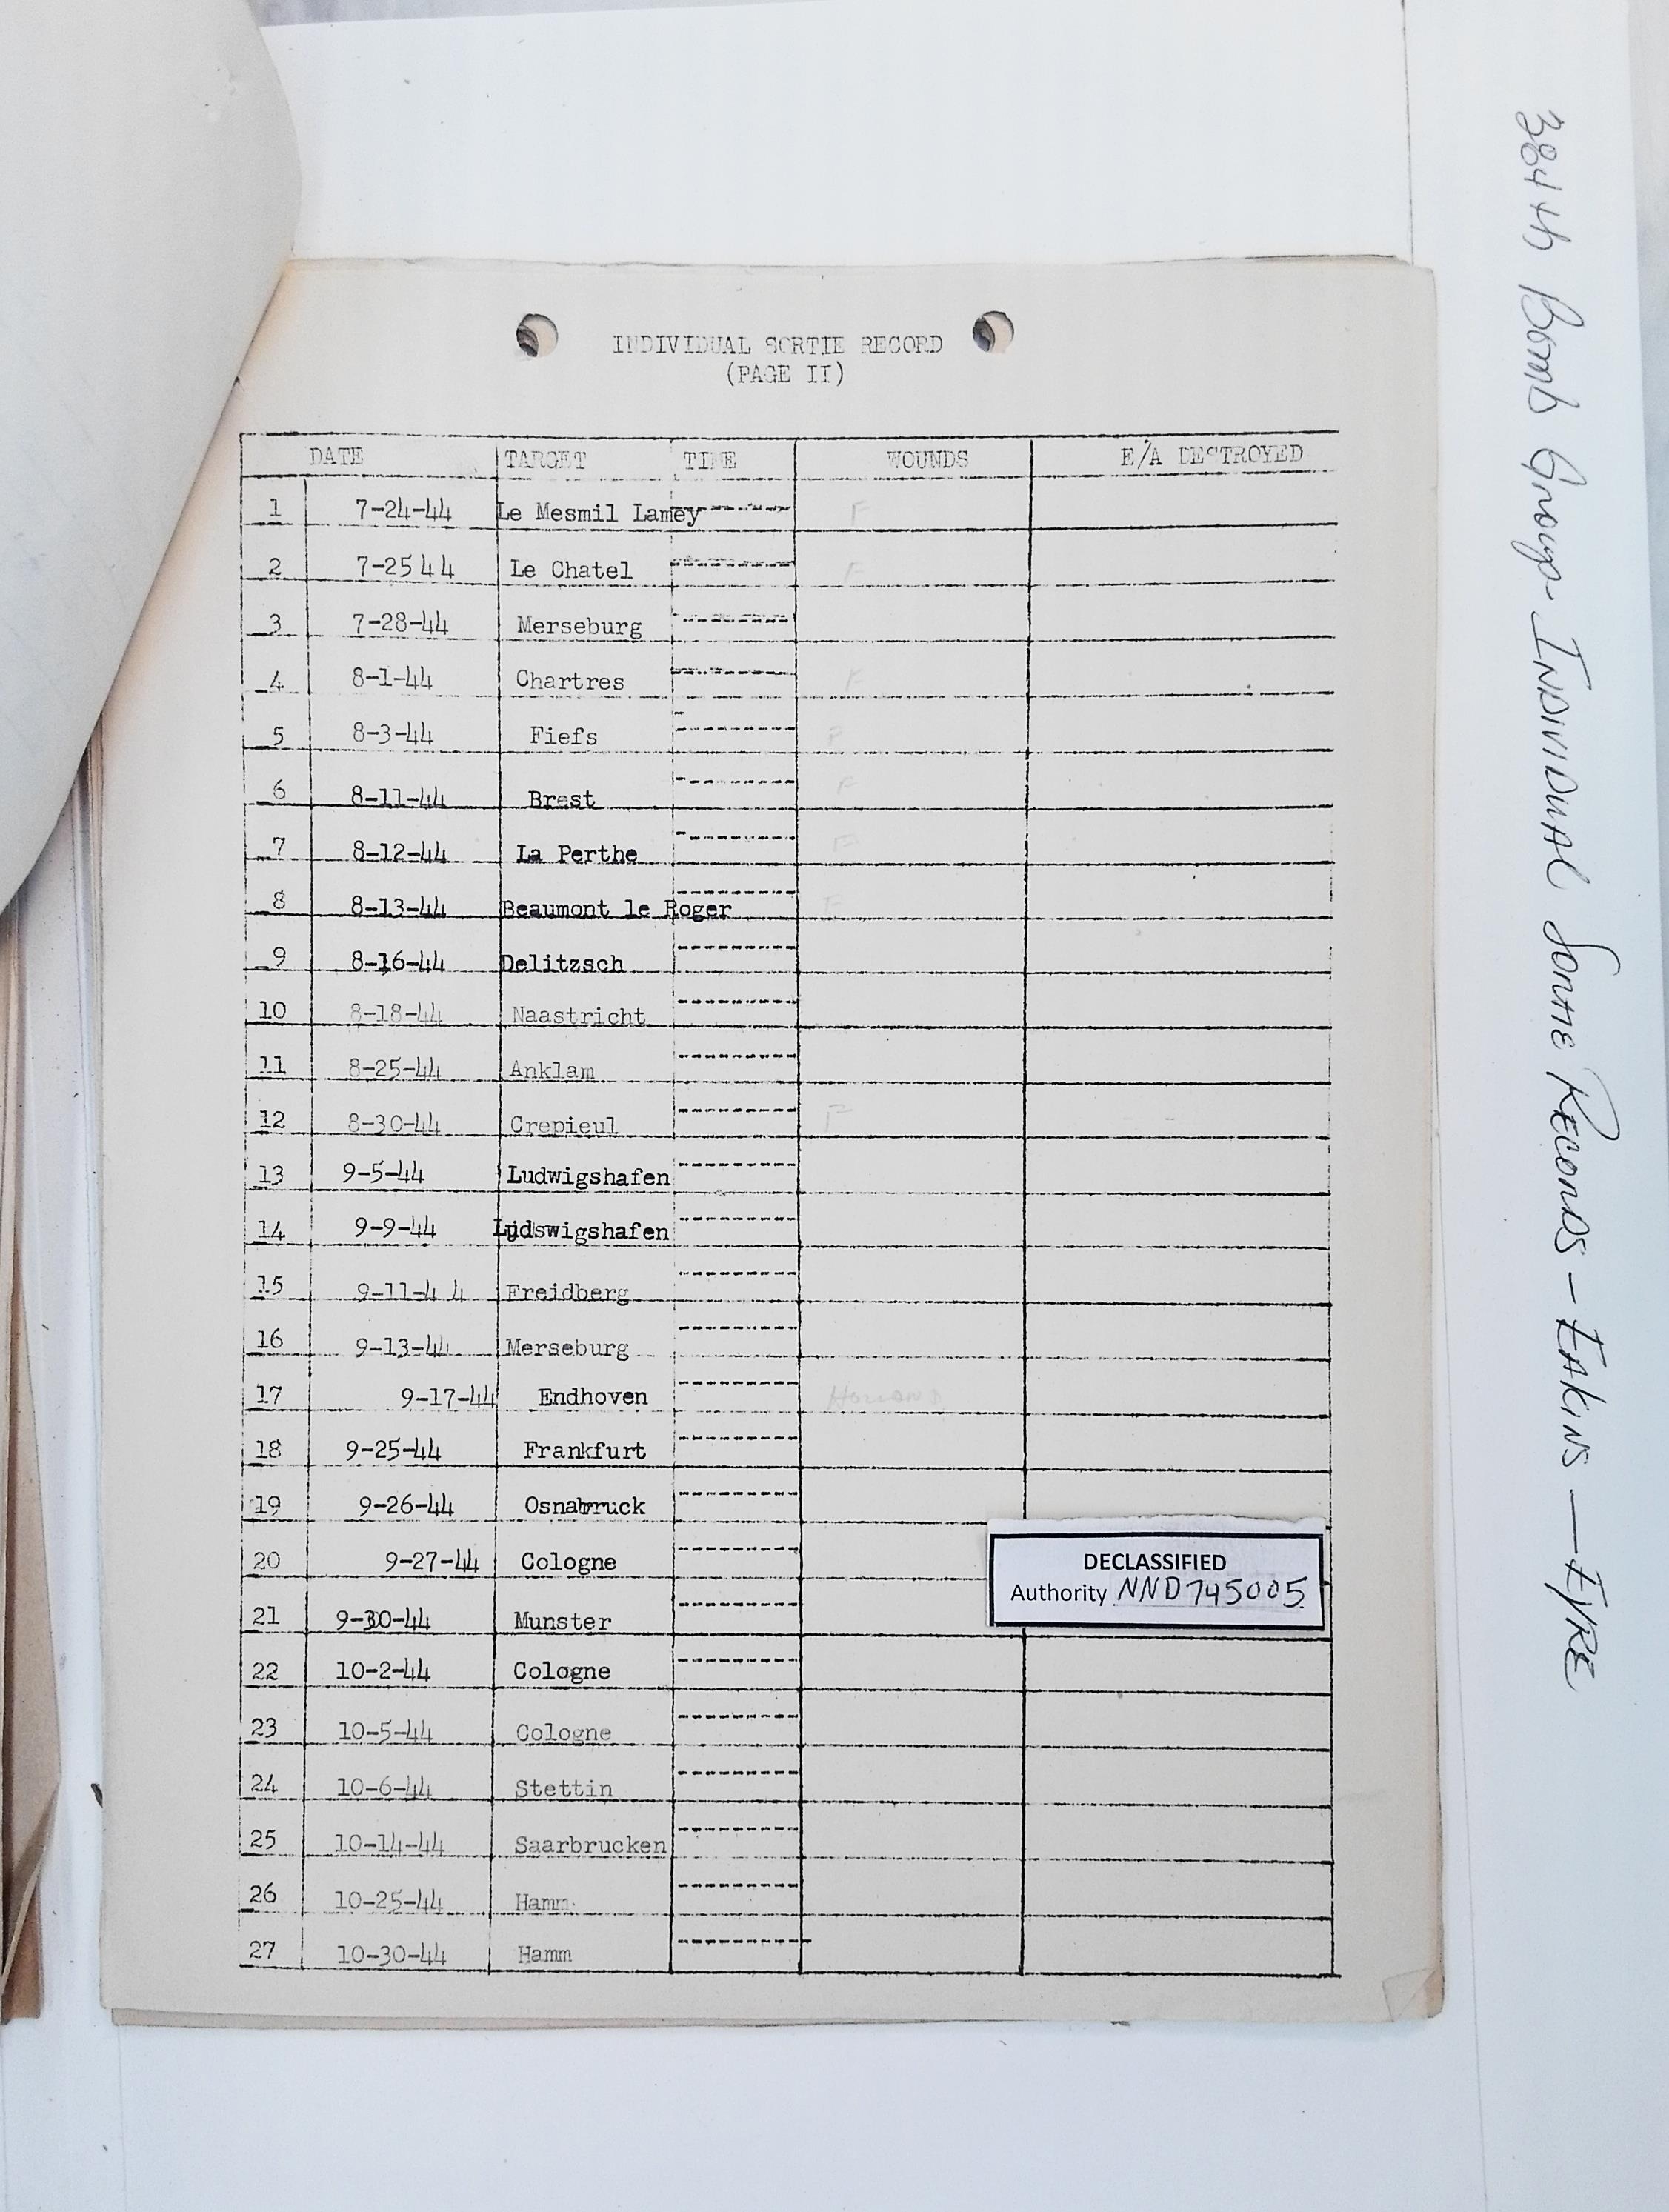 INDIVIDUAL SORTIE RECORD
(PAGE II)
DATE TARGET TIME WOUNDS E/A DESTROYED
1 7-24-44 Le Mesmil Lamey --------- F
2 7-2544 Le Chatel --------- F
3 7-28-44 Merseburg ---------
4 8-1-44 Chartres --------- F
5 8-3-44 Fiefs --------- F
6 8-11-44 Brest --------- F
7 8-12-44 La Perthe --------- F
8 8-13-44 Beaumont le Roger --------- F
9 8-16-44 Delitzsch ---------
10 8-18-44 Naastricht ---------
11 8-25-44 Anklam ---------
12 8-30-44 Crepieul --------- F
13 9-5-44 Ludwigshafen ---------
14 9-9-44 Ludswigshafen ---------
15 9-11-4 4 Freidberg ---------
16 9-13-44 Merseburg ---------
17 9-17-44 Endhoven --------- HOLLAND
18 9-25-44 Frankfurt ---------
19 9-26-44 Osnabruck ---------
20 9-27-44 Cologne ---------
21 9-30-44 Munster ---------
22 10-2-44 Cologne ---------
23 10-5-44 Cologne ---------
24 10-6-44 Stettin ---------
25 10-14-44 Saarbrucken ---------
26 10-25-44 Hamm ---------
27 10-30-44 Hamm ---------
DECLASSIFIED
Authority NND745005
384th Bomb Group - INDIVIDUAL SORTIE RECORDS - EAKINS - EYRE